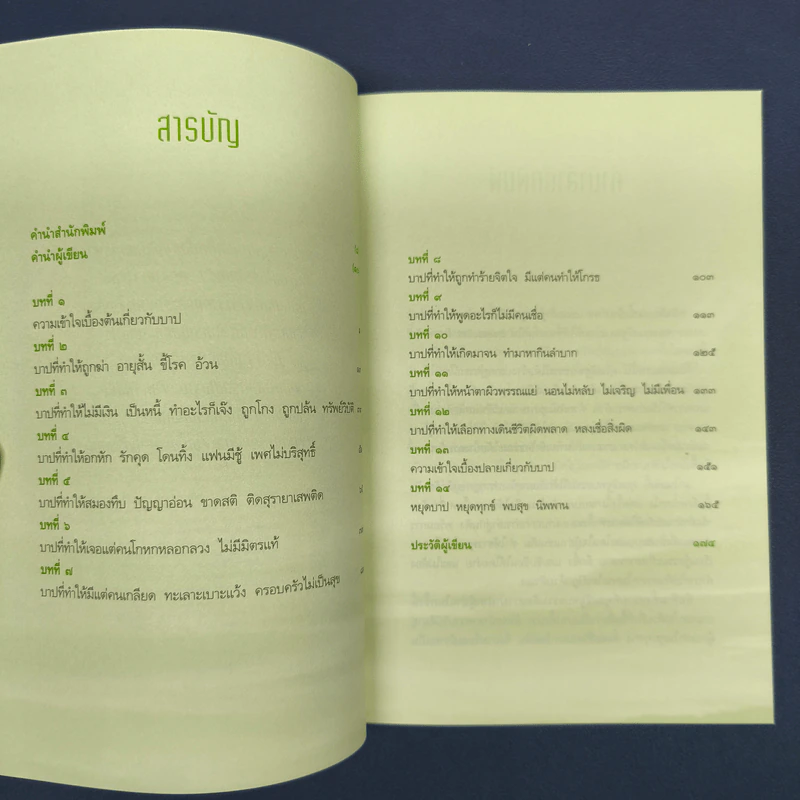 สารบัญ
คำนำสำนักพิมพ์
คำนำผู้เขียน
บทที่ ๑
ความเข้าใจเบื้องต้นเกี่ยวกับบาป
บทที่ ๒
บาปที่ทำให้ถูกฆ่า อายุสั้น ขี้โรค อ้วน
บทที่ ๓
บาปที่ทำให้ไม่มีเงิน เป็นหนี้ ทำอะไรก็เจ๊ง ถูกโกง ถูกปล้น ทรัพย์วิบัติ
บทที่ ๔
บาปที่ทำให้อกหัก รักคุด โดนทิ้ง แฟนมีชู้ เพศไม่บริสุทธิ์
บทที่ ๕
บาปที่ทำให้สมองทึบ ปัญญาอ่อน ขาดสติ ติดสุรายาเสพติด
บทที่ ๖
บาปที่ทำให้เจอแต่คนโกหกหลอกลวง ไม่มีมิตรแท้
บทที่ ๗
บาปที่ทำให้มีแต่คนเกลียด ทะเลาะเบาะแว้ง ครอบครัวไม่เป็นสุข
บทที่ ๘
บาปที่ทำให้ถูกทำร้ายจิตใจ มีแต่คนทำให้โกรธ ๑๐๓
บทที่ ๙
บาปที่ทำให้พูดอะไรก็ไม่มีคนเชื่อ ๑๑๓
บทที่ ๑๐
บาปที่ทำให้เกิดมาจน ทำมาหากินลำบาก ๑๒๕
บทที่ ๑๑
บาปที่ทำให้หน้าตาผิวพรรณแย่ นอนไม่หลับ ไม่เจริญ ไม่มีเพื่อน ๑๓๓
บทที่ ๑๒
บาปที่ทำให้เลือกทางเดินชีวิตผิดพลาด หลงเชื่อสิ่งผิด ๑๔๓
บทที่ ๑๓
ความเข้าใจเบื้องปลายเกี่ยวกับบาป ๑๕๑
บทที่ ๑๔
หยุดบาป หยุดทุกข์ พบสุข นิพพาน ๑๖๕
ประวัติผู้เขียน ๑๗๔